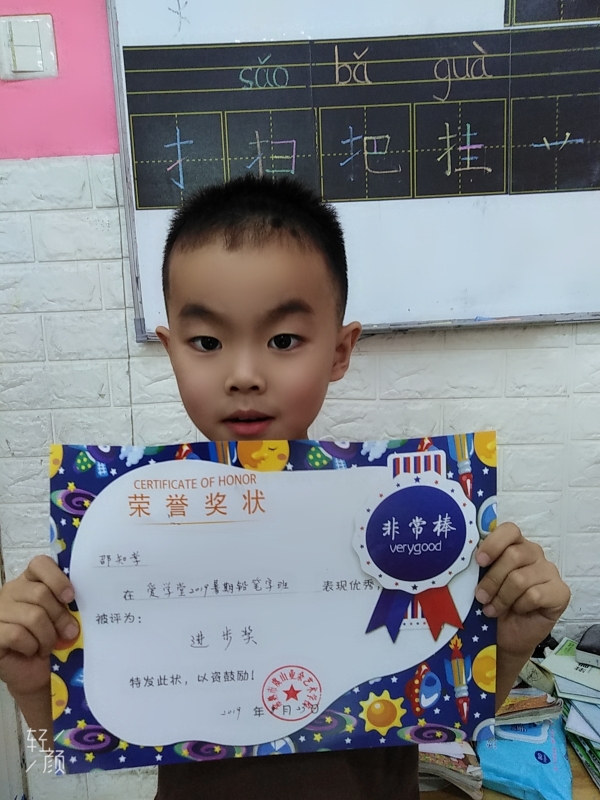 sǎo bǎ guà
扌 扫 把 挂
CERTIFICATE OF HONOR
荣誉奖状
非常棒
verygood
在 爱学堂2019暑期铅笔字班 表现优秀,
被评为:
进步奖
特发此状,以资鼓励!
2019 年 月 日
轻颜